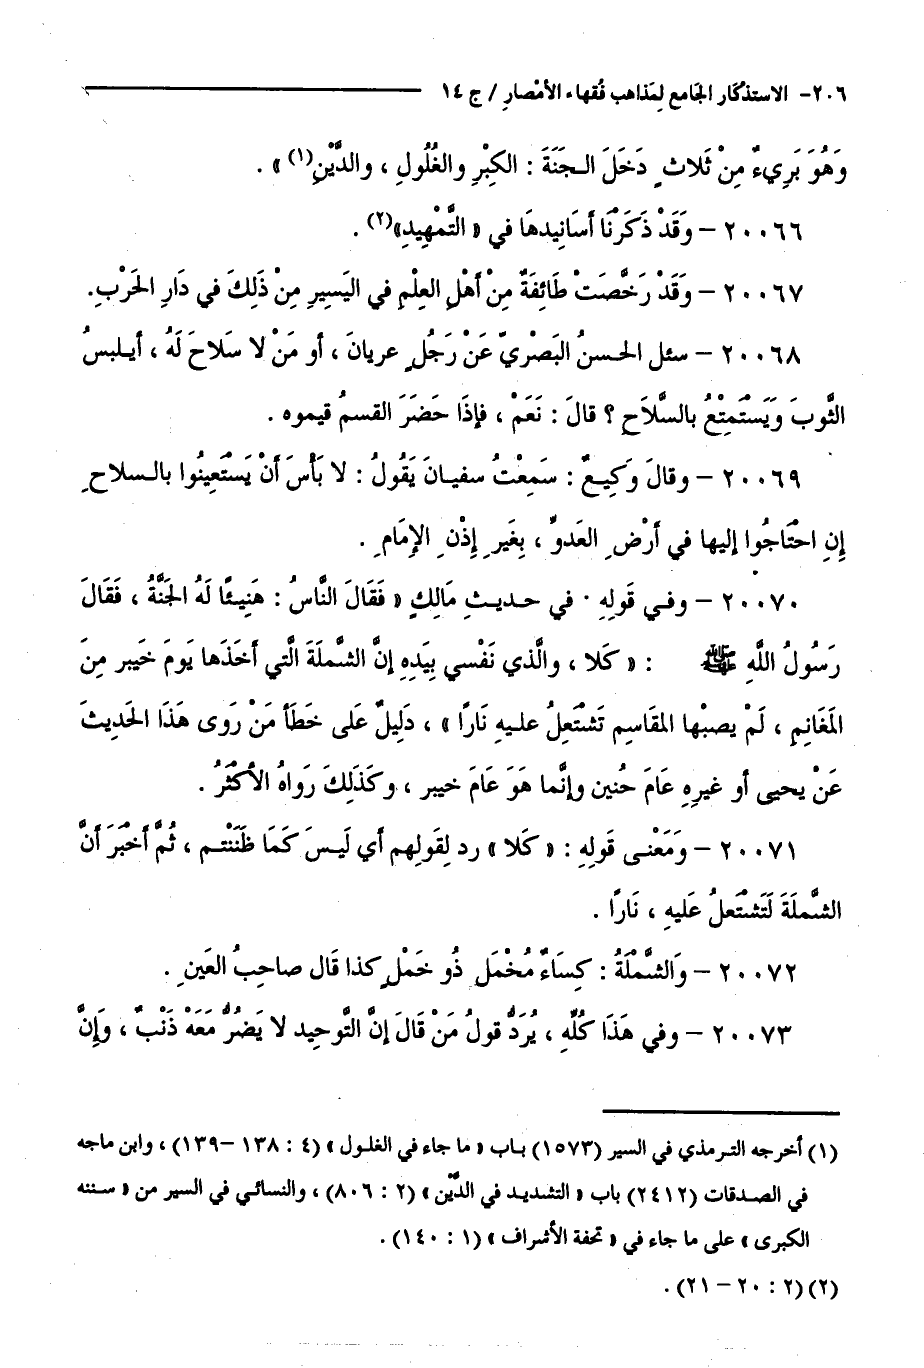 ٢٠٦- الاستذكار الجامع لِمَذاهب فُقهاء الأمْصارِ / ج ١٤
وَهُوَ بَرِيءٌ مِنْ ثَلاثٍ دَخَلَ الـجَنَةَ : الكِبْرِ والغُلُولِ ، والدَّيْنِ(١) » .
٢٠٠٦٦ – وَقَدْ ذَكَرْنَا أسَانِيدهَا في « التَّمْهِيدِ»(٢) .
٢٠٠٦٧ – وَقَدْ رَخَّصَتْ طَائِفَةٌ مِنْ أهْلِ العِلْمِ في اليَسِيرِ مِنْ ذَلِكَ في دَارِ الحَرْبِ.
٢٠٠٦٨ – سئل الحسنُ البَصْرِيّ عَنْ رَجُلٍ عريان ، أو مَنْ لا سَلَاح لَهُ ، أيـلبسُ
الثَّوبَ وَيَسْتَمِتْعُ بالسَّلَاحِ ؟ قالَ : نَعَمْ ، فإذَا حَضَرَ القسمُ قيموه .
٢٠٠٦٩ – وقالَ وَكِيـعٌ : سَمِعْتُ سفيـانَ يَقُولُ : لا بَأْسَ أَنْ يَسْتَعِينُوا بالـسلاحِ
إِنِ احْتَاجُوا إليها في أرْضِ العَدوِّ ، بِغَيرِ إِذْنِ الإِمَامِ .
٢٠٠٧٠ – وفـي قَولِهِ · في حديـثِ مَالِكٍ « فَقَالَ النَّاسُ : هَنِيـئًا لَهُ الجَنَّةُ ، فَقَالَ
رَسُولُ اللَّهِ ﷺ : « كَلا ، والَّذي نَفْسي بِيَدِهِ إنَّ الشَّملَةَ الَّتي أخَذَها يَومَ خَيبر مِنَ
المَغَانِمِ ، لَمْ يصبْها المقاسِم تَشْتَعِلُ علـيهِ نَارًا » ، دَلِيلٌ عَلى خَطَأ مَنْ رَوى هَذا الحَديثَ
عَنْ يحيى أو غيرِهِ عَامَ حُنين وإنَّما هوَ عَامَ خيبر ، وكَذَلِكَ رَواهُ الأكْثَرُ .
٢٠٠٧١ – وَمَعْنـى قَولِهِ : « كَلا » رد لِقولِهم أي لَيـسَ كَمَا ظَنَنْتـم ، ثُمَّ أخْبَرَ أنَّ
الشَّملَةَ لَتَشْتَعلُ عَليهِ ، نَارًا .
٢٠٠٧٢ – وَالشَّمْلَةُ : كِسَاءٌ مُخْمَلٍ ذُو خَمْلٍ كذا قَال صاحِبُ العَينِ .
٢٠٠٧٣ – وفي هَذَا كُلِّهِ ، يُرَدُّ قولُ مَنْ قَالَ إنَّ التَّوحيد لا يَضُرُّ مَعَهُ ذَنْبٌ ، وَإنَّ
(١) أخرجه التـرمذي في السير (١٥٧٣) بـاب « ما جاء في الغلـول » (٤ : ١٣٨ –١٣٩) ، وابن ماجه
في الصـدقات (٢٤١٢) باب « التشديد في الدَّيْن » (٢ : ٨٠٦) ، والنسائـي في السير من « سـننه
الكبرى » على ما جاء في « تحفة الأشراف » (١ : ١٤٠) .
(٢) (٢ : ٢٠ – ٢١) .